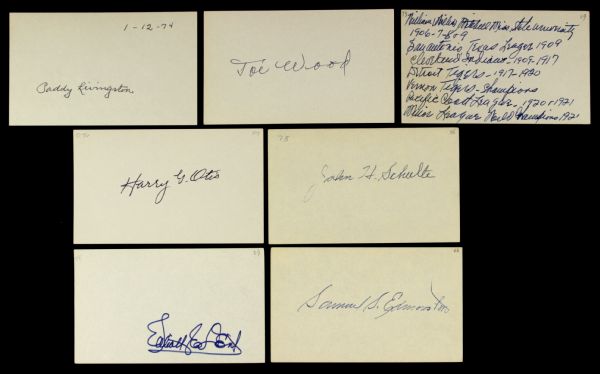 1-12-74
Paddy Livingston
Joe Wood
William Willie Mitchell Miss. State University
1906-7-8 o 9
San Antonio Texas League 1909
Cleveland Indians - 1909-1917
Detroit Tigers - 1917-1920
Vernon Tigers - Champions
Pacific Coast League - 1920 o 1921
Minor League World Champions 1921
Harry G. Otis
78
John H. Schulte
Samuel S. Edmonston